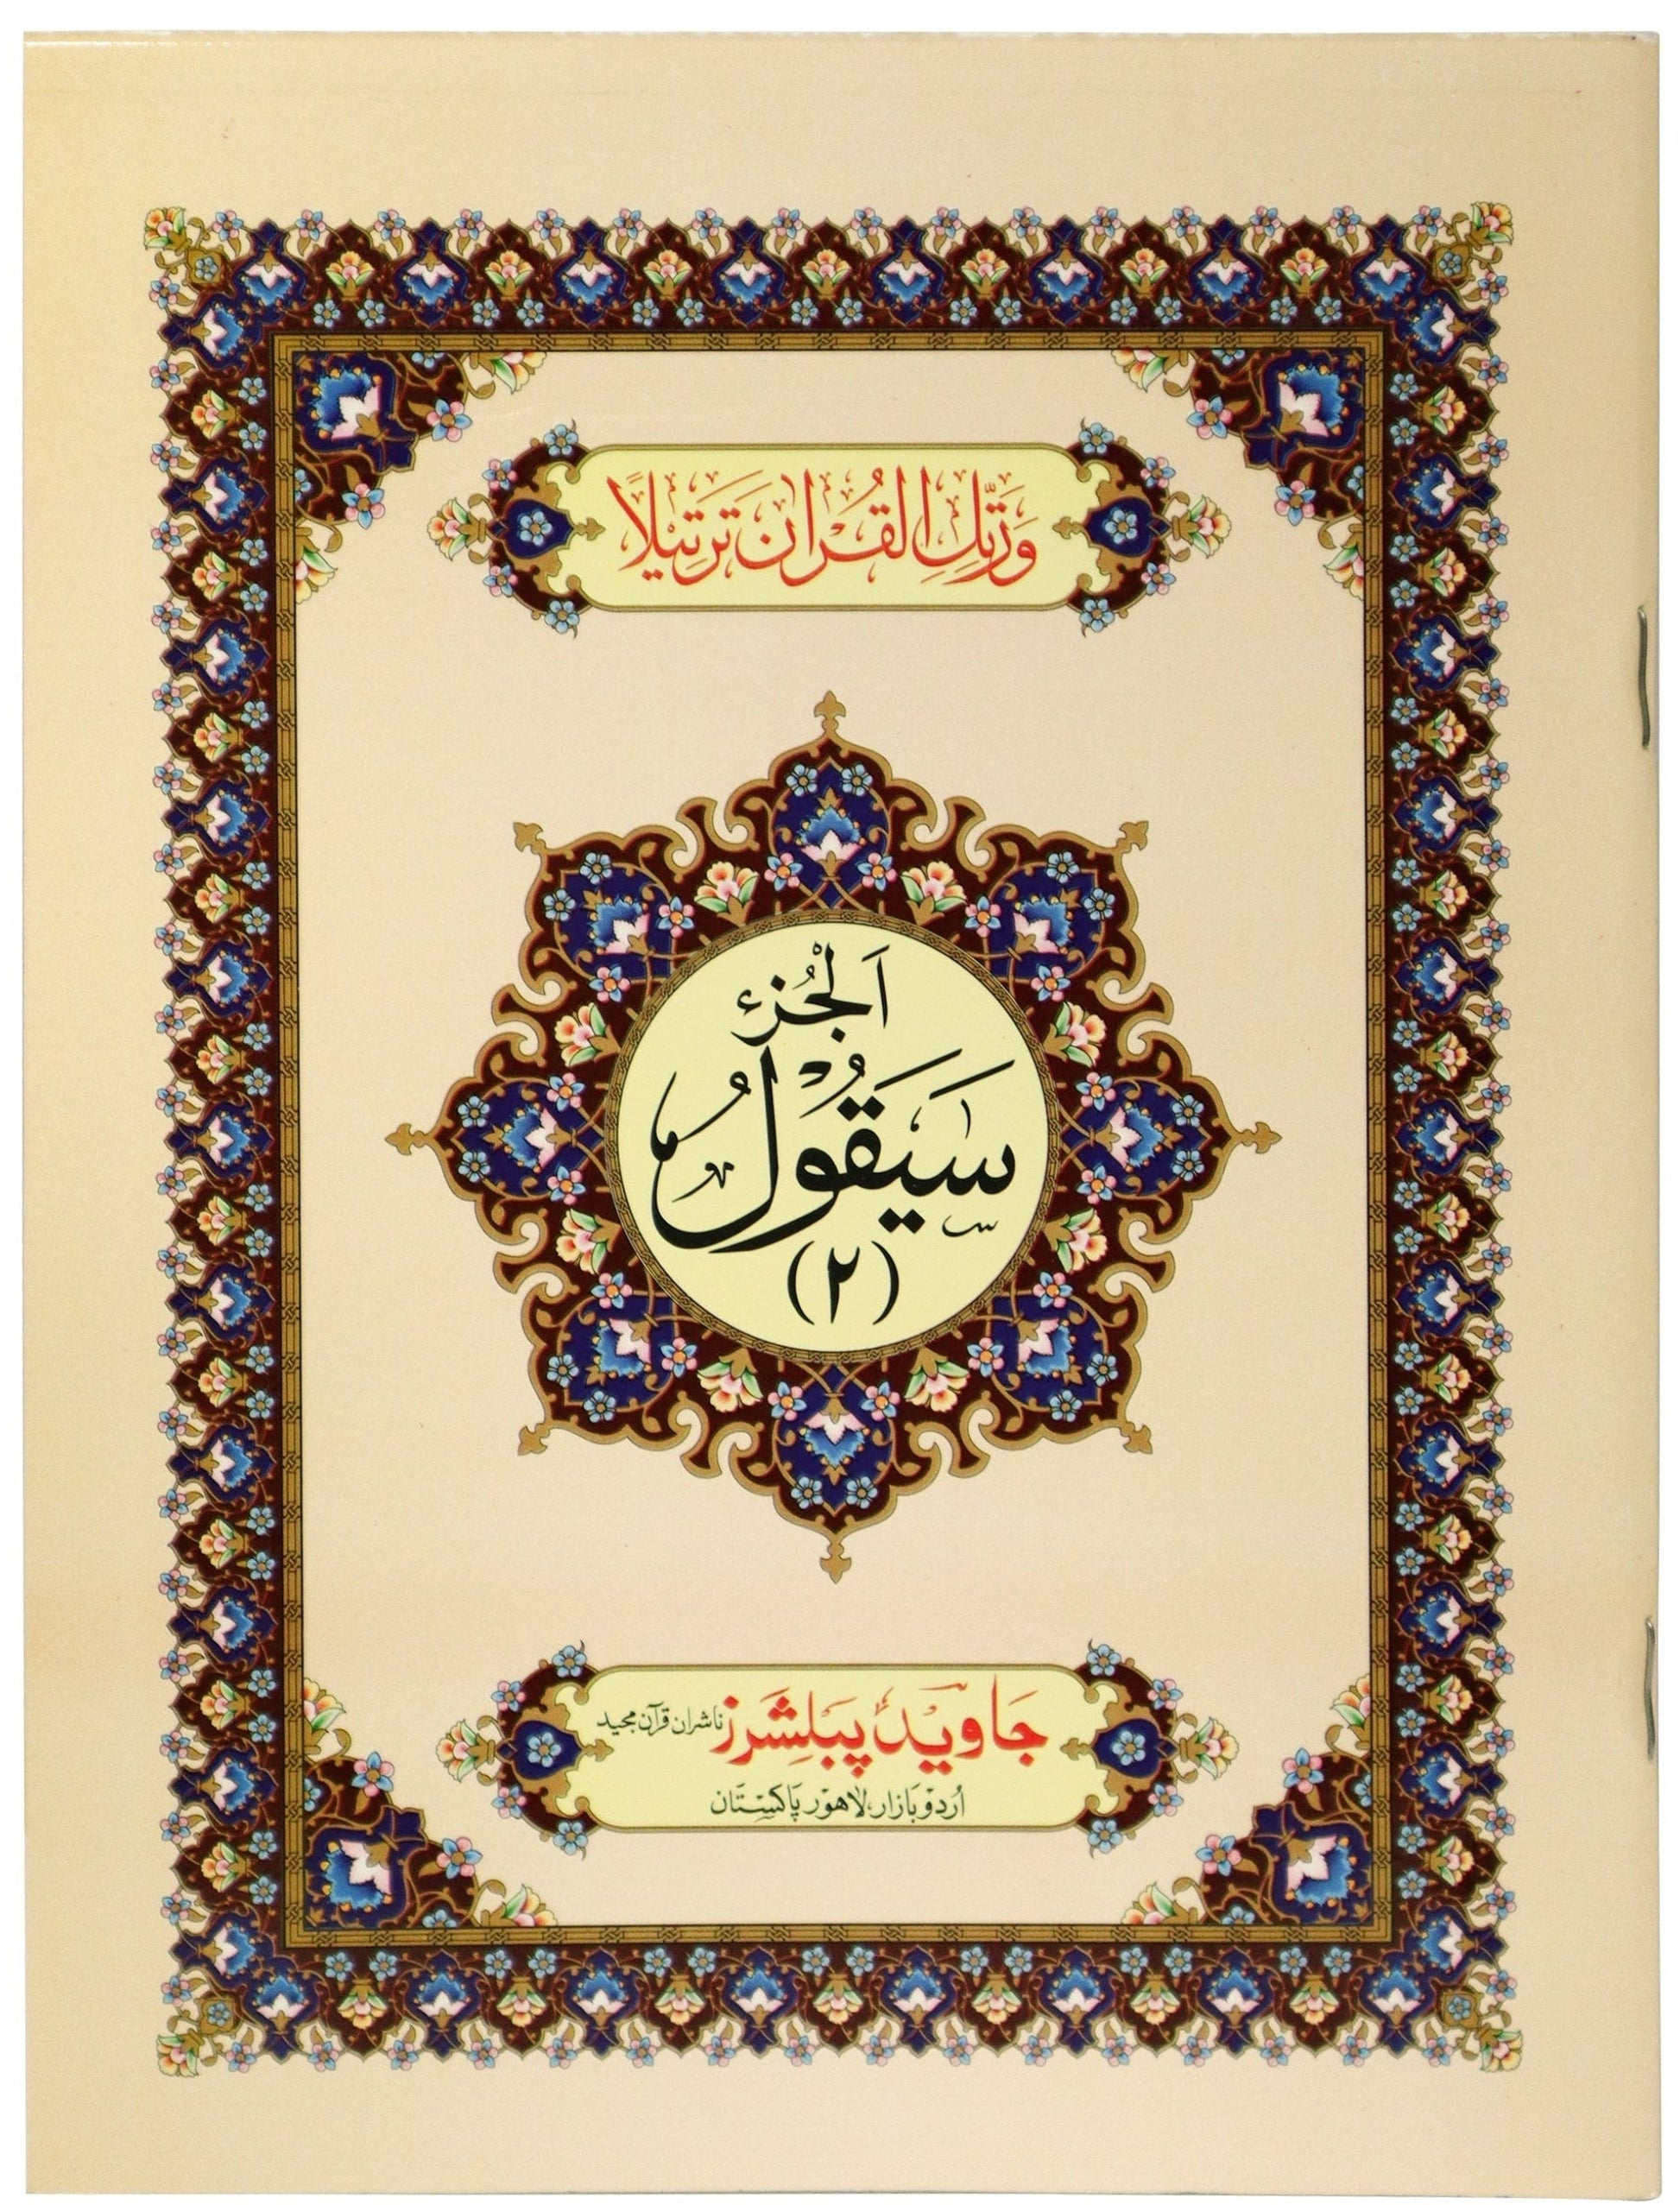 وَرَتِّلِ الْقُرْاٰنَ تَرْتِيْلًا
اَلْجُزْء
سَيَقُوْلُ
(٢)
جَاوید پَبلِشَرز ناشران قرآن مجید
اُردو بَازار، لاهور پَاکسْتَان